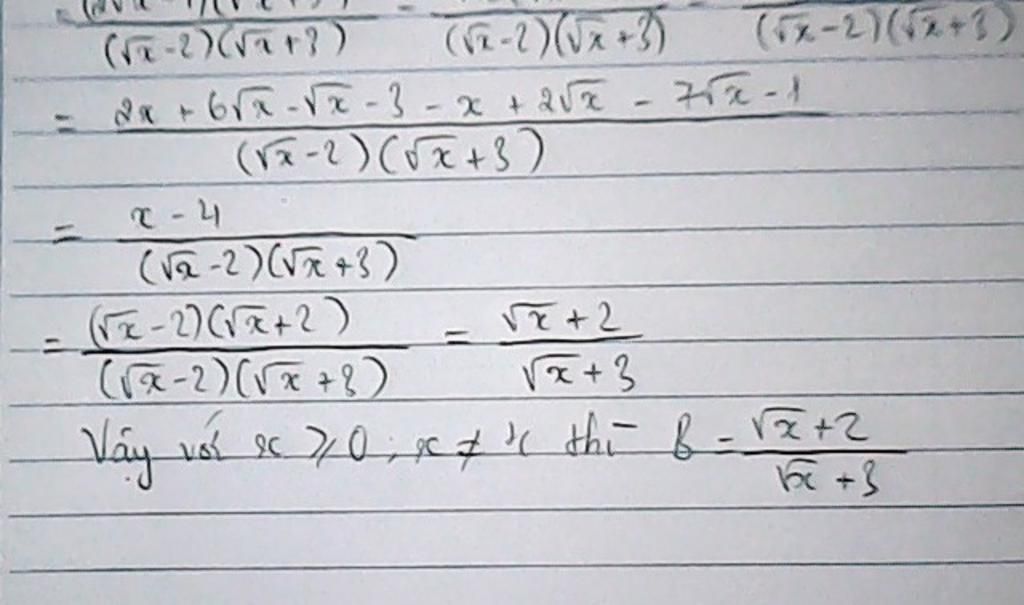 (√x-2)(√x+3) (√x-2)(√x+3) (√x-2)(√x+3)
= 2x + 6√x - √x - 3 - x + 2√x - 7√x - 1
(√x-2)(√x+3)
= x - 4
(√x-2)(√x+3)
= (√x-2)(√x+2) = √x+2
(√x-2)(√x+3) √x+3
Vậy với x ⩾ 0; x ≠ 4 thì B = √x+2
√x+3